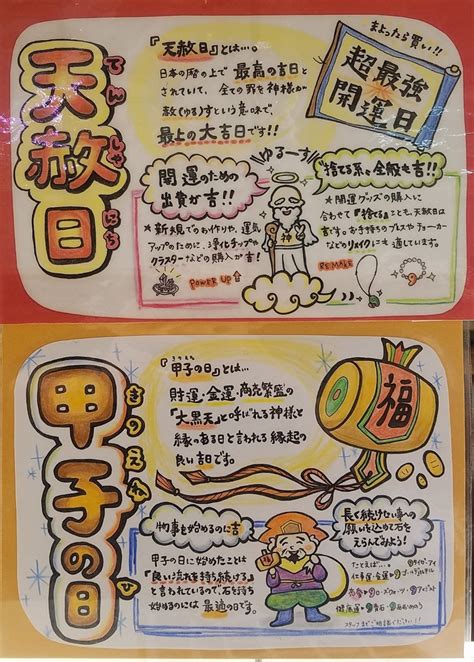 天赦日
てんしゃにち
『天赦日』とは…
日本の暦の上で 最高の吉日と
されていて、全ての罪を神様が
赦(ゆる)すという意味で、
最上の大吉日です!!
まよったら買い!!
超最強
開運日
開運のための
出費が吉!!
★新規でのお作りや、運気
アップのために、浄化チップや
クラスターなどの購入が吉!
POWER UP
ゆるーす
神
"捨てる系"全般も吉!!
★開運グッズの購入に
合わせて『捨てる』ことも、天赦日は
吉です。お手持ちのブレスやチョーカー
などのリメイクにも適しています。
RE MAKE
甲子の日
きのえねのひ
『甲子の日』とは…
財運・金運・商売繁盛の
「大黒天」と呼ばれる神様と
縁のある日と言われる縁起の
良い吉日です。
福
物事を始めるのに吉
甲子の日に始めたことは
『良い流れを持ち続ける』
と言われているので、石を持ち
始めるのには最適の日です。
長く続けたい事への
願いを込めて石を
えらんでみよう!
たとえば…
仕事運・金運
スタッフまでご相談ください!!